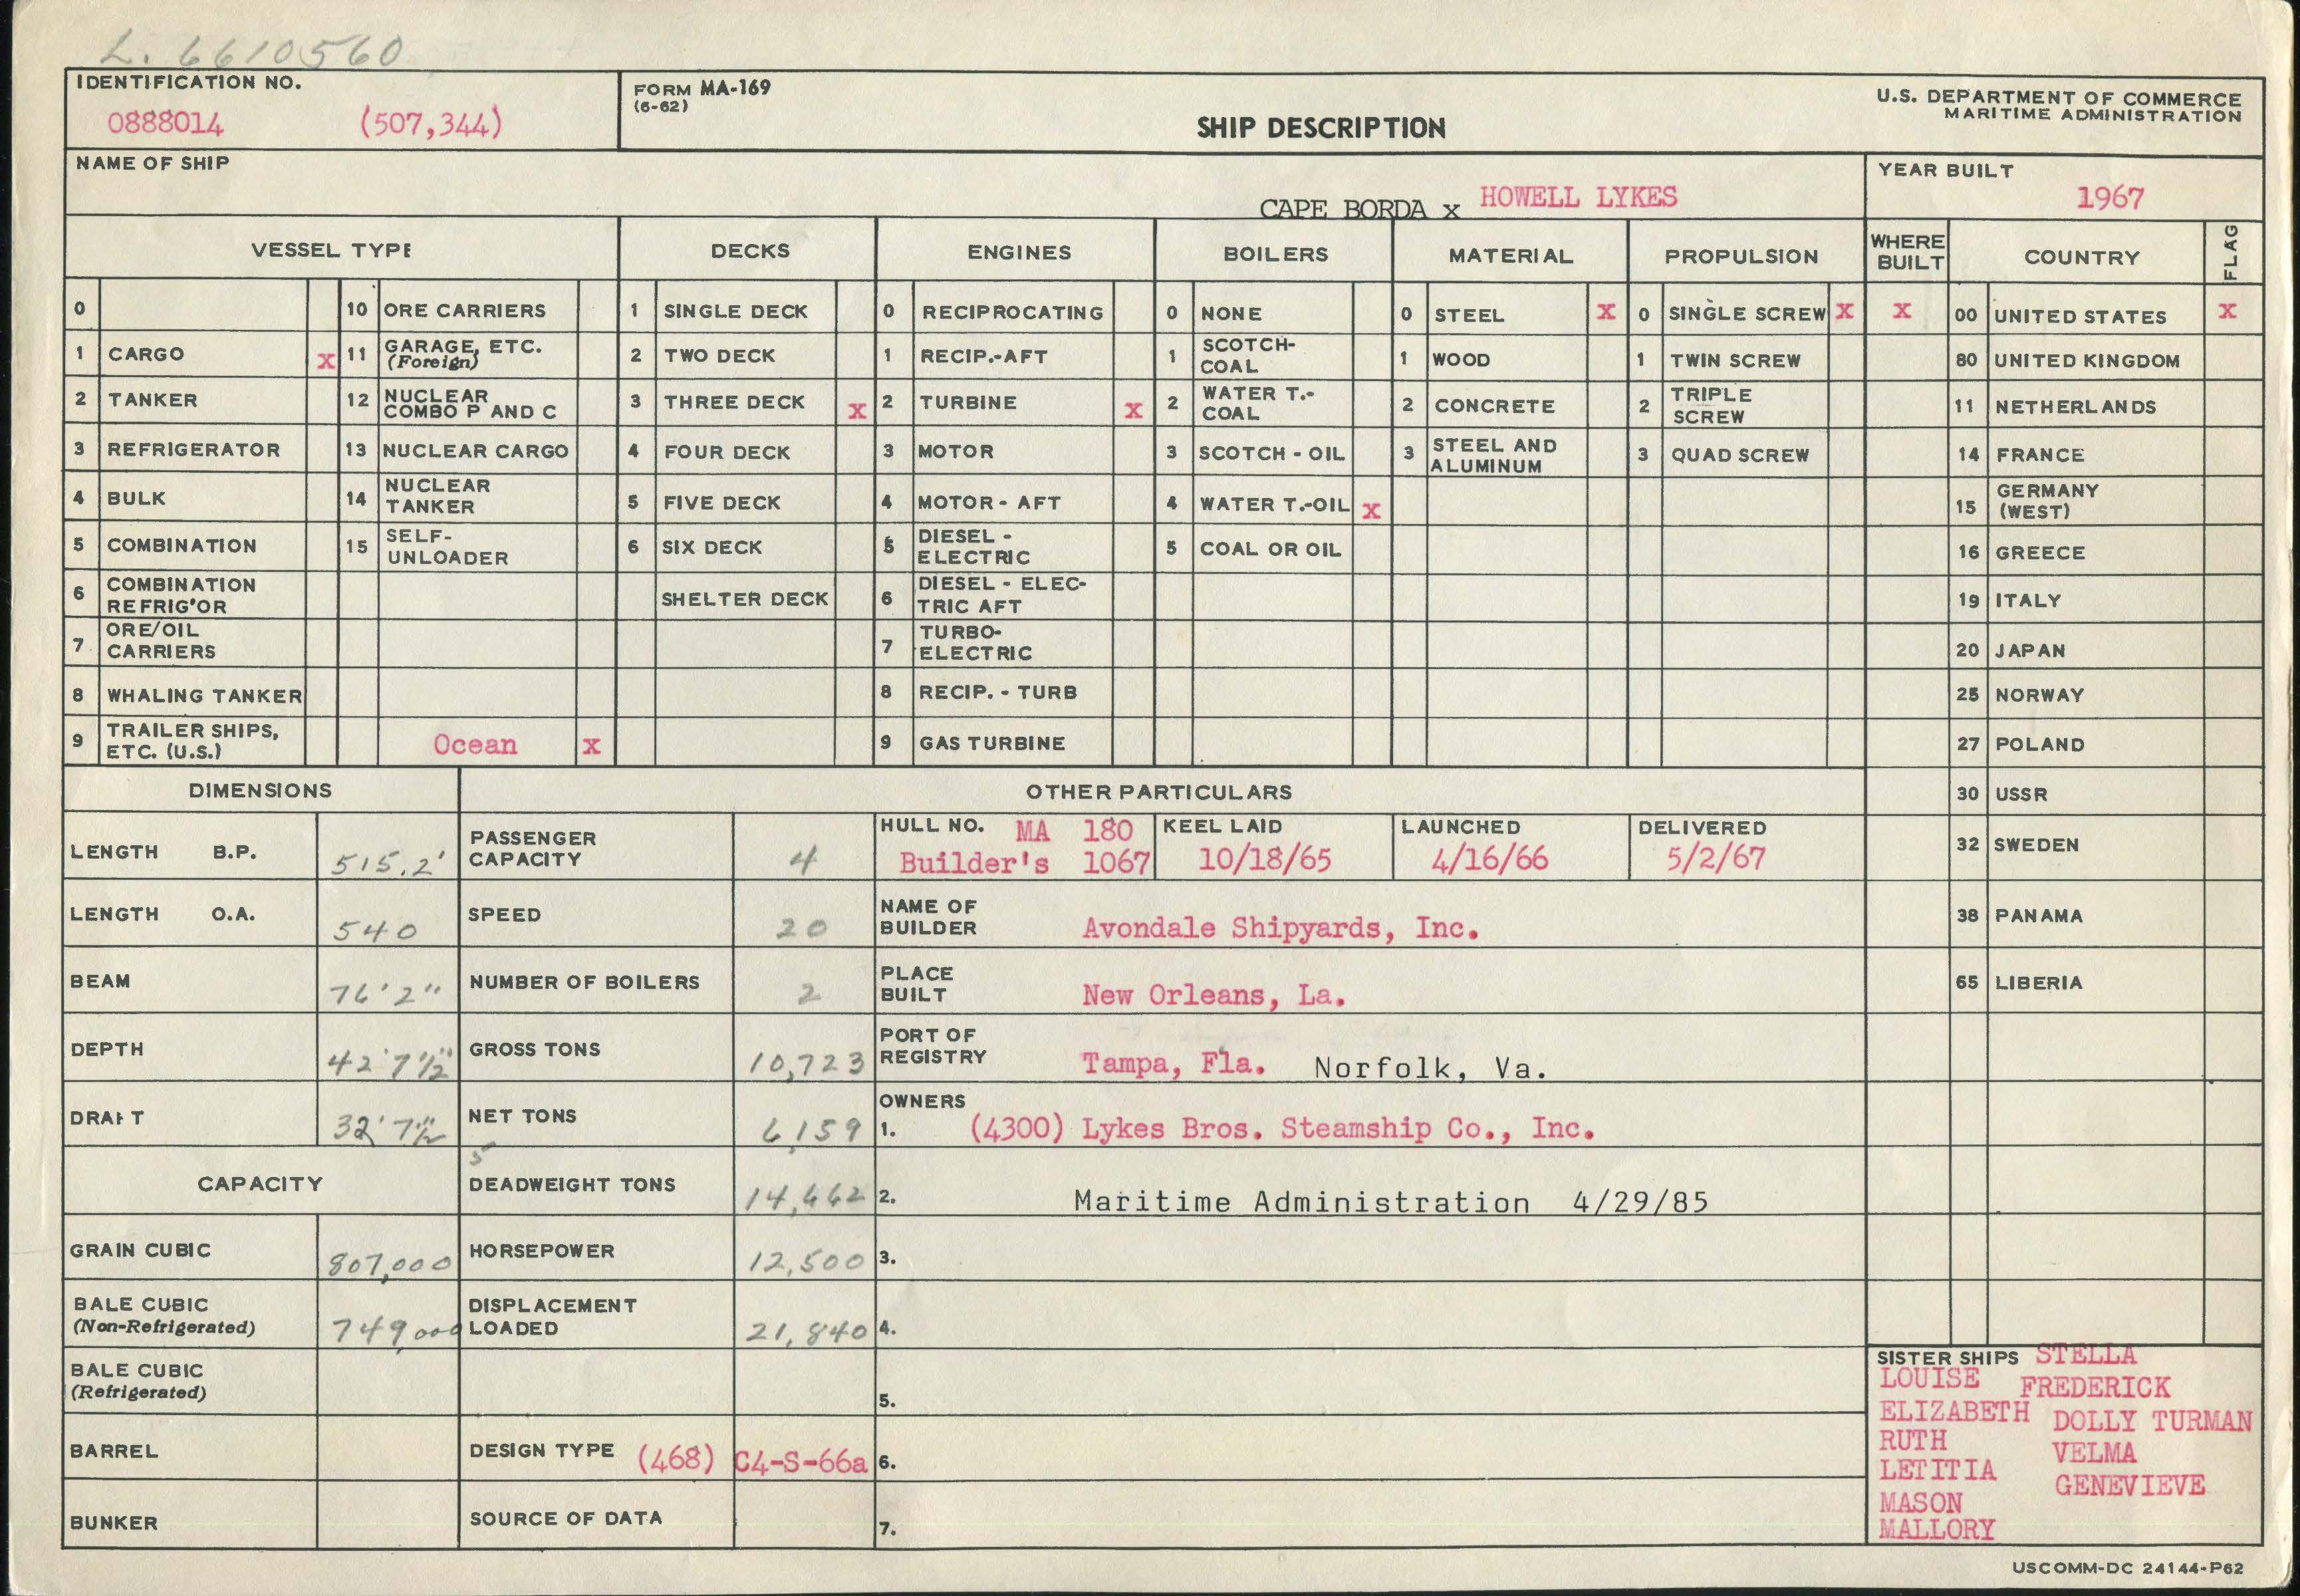 L. 6610560
IDENTIFICATION NO.
0888014 (507,344)
FORM MA-169
(6-62)
SHIP DESCRIPTION
U.S. DEPARTMENT OF COMMERCE
MARITIME ADMINISTRATION
NAME OF SHIP
CAPE BORDA x HOWELL LYKES
YEAR BUILT
1967
VESSEL TYPE DECKS ENGINES BOILERS MATERIAL PROPULSION WHERE BUILT COUNTRY FLAG
0 10 ORE CARRIERS 1 SINGLE DECK 0 RECIPROCATING 0 NONE 0 STEEL X 0 SINGLE SCREW X X 00 UNITED STATES X
1 CARGO X 11 GARAGE, ETC. (Foreign) 2 TWO DECK 1 RECIP.-AFT 1 SCOTCH-COAL 1 WOOD 1 TWIN SCREW 80 UNITED KINGDOM
2 TANKER 12 NUCLEAR COMBO P AND C 3 THREE DECK X 2 TURBINE X 2 WATER T.-COAL 2 CONCRETE 2 TRIPLE SCREW 11 NETHERLANDS
3 REFRIGERATOR 13 NUCLEAR CARGO 4 FOUR DECK 3 MOTOR 3 SCOTCH - OIL 3 STEEL AND ALUMINUM 3 QUAD SCREW 14 FRANCE
4 BULK 14 NUCLEAR TANKER 5 FIVE DECK 4 MOTOR - AFT 4 WATER T.-OIL X 15 GERMANY (WEST)
5 COMBINATION 15 SELF-UNLOADER 6 SIX DECK 5 DIESEL - ELECTRIC 5 COAL OR OIL 16 GREECE
6 COMBINATION REFRIG'OR SHELTER DECK 6 DIESEL - ELEC-TRIC AFT 19 ITALY
7 ORE/OIL CARRIERS 7 TURBO-ELECTRIC 20 JAPAN
8 WHALING TANKER 8 RECIP. - TURB 25 NORWAY
9 TRAILER SHIPS, ETC. (U.S.) Ocean X 9 GAS TURBINE 27 POLAND
DIMENSIONS OTHER PARTICULARS 30 USSR
LENGTH B.P. 515.2' PASSENGER CAPACITY 4 HULL NO. MA 180 Builder's 1067 KEEL LAID 10/18/65 LAUNCHED 4/16/66 DELIVERED 5/2/67 32 SWEDEN
LENGTH O.A. 540 SPEED 20 NAME OF BUILDER Avondale Shipyards, Inc. 38 PANAMA
BEAM 76'2" NUMBER OF BOILERS 2 PLACE BUILT New Orleans, La. 65 LIBERIA
DEPTH 42'7½" GROSS TONS 10,723 PORT OF REGISTRY Tampa, Fla. Norfolk, Va.
DRAFT 32'7½" NET TONS 6,159 OWNERS 1. (4300) Lykes Bros. Steamship Co., Inc.
5
CAPACITY DEADWEIGHT TONS 14,662 2. Maritime Administration 4/29/85
GRAIN CUBIC 807,000 HORSEPOWER 12,500 3.
BALE CUBIC (Non-Refrigerated) 749,000 DISPLACEMENT LOADED 21,840 4.
BALE CUBIC (Refrigerated) 5.
BARREL DESIGN TYPE (468) C4-S-66a 6.
BUNKER SOURCE OF DATA 7.
SISTER SHIPS STELLA
LOUISE FREDERICK
ELIZABETH DOLLY TURMAN
RUTH VELMA
LETITIA GENEVIEVE
MASON
MALLORY
USCOMM-DC 24144-P62